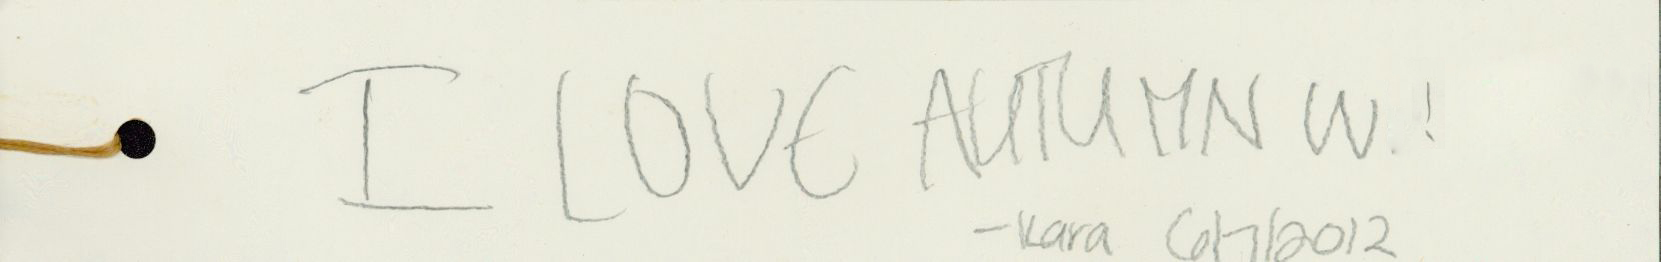 I LOVE AUTUMN W.!
-Kara 6/7/2012